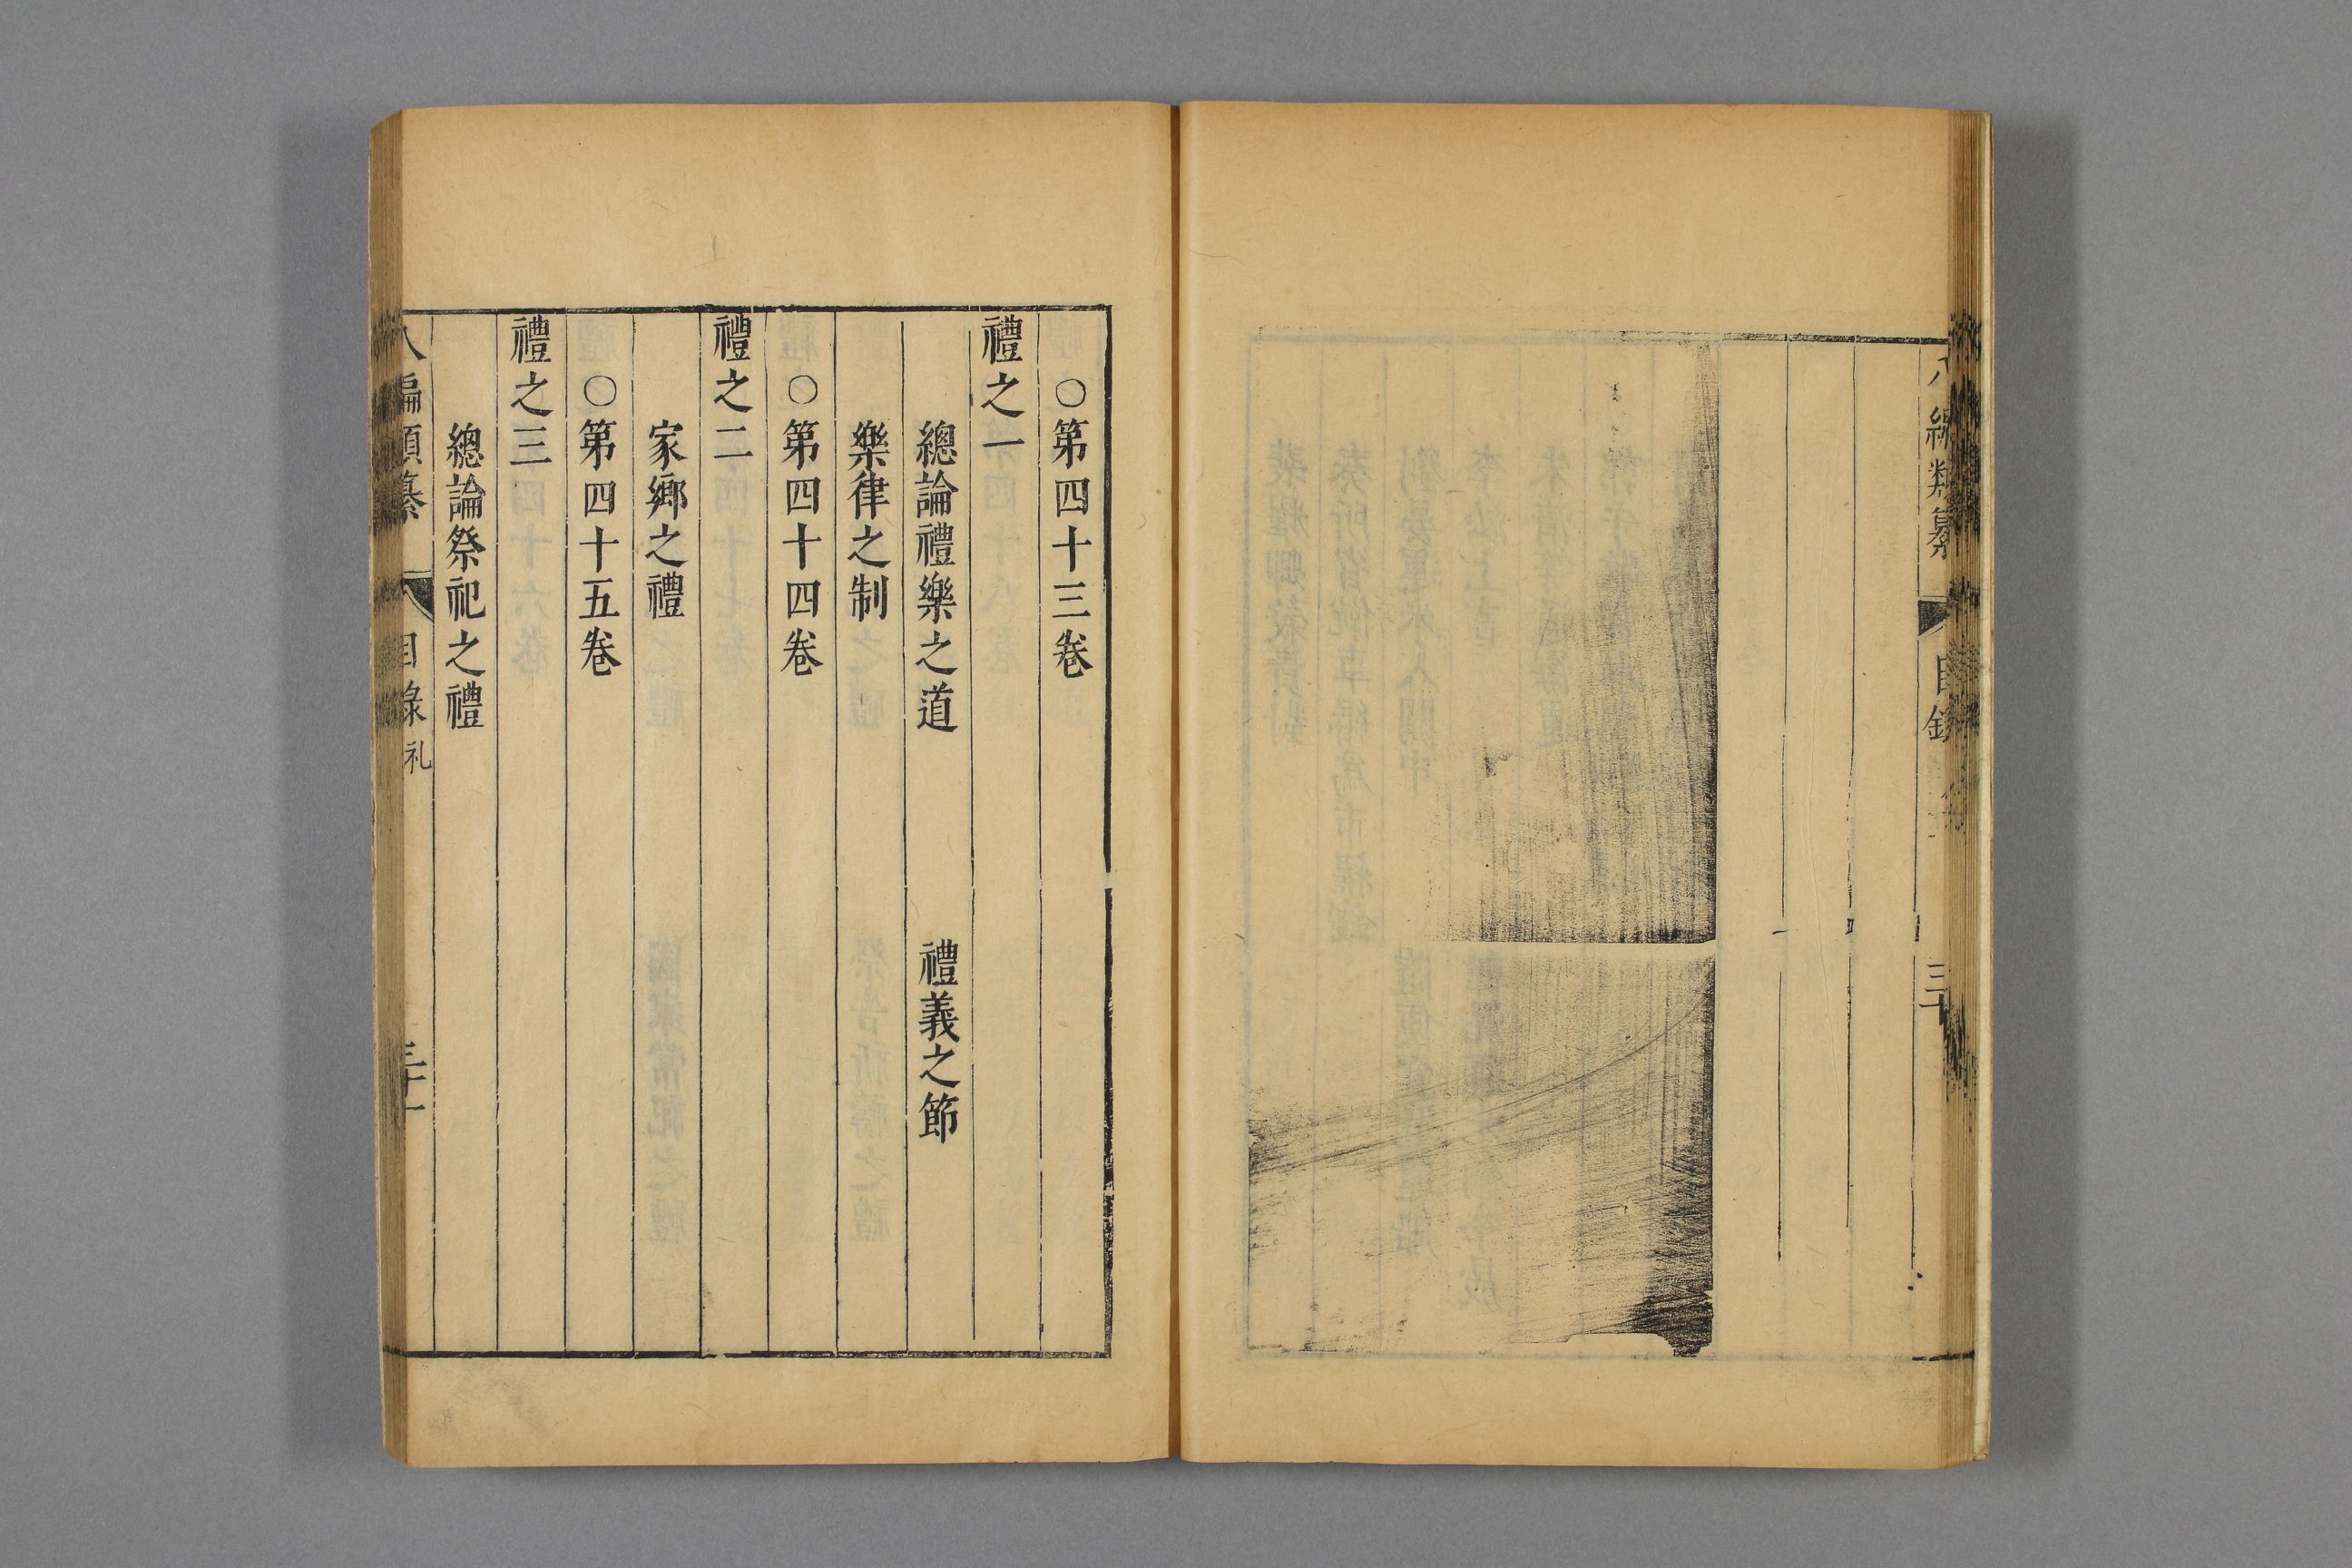 編類纂 目錄 三十
○第四十三卷
禮之一
總論禮樂之道 禮義之節
樂律之制
○第四十四卷
禮之二
家鄉之禮
○第四十五卷
禮之三
總論祭祀之禮
八編類纂 目錄 礼 三十一